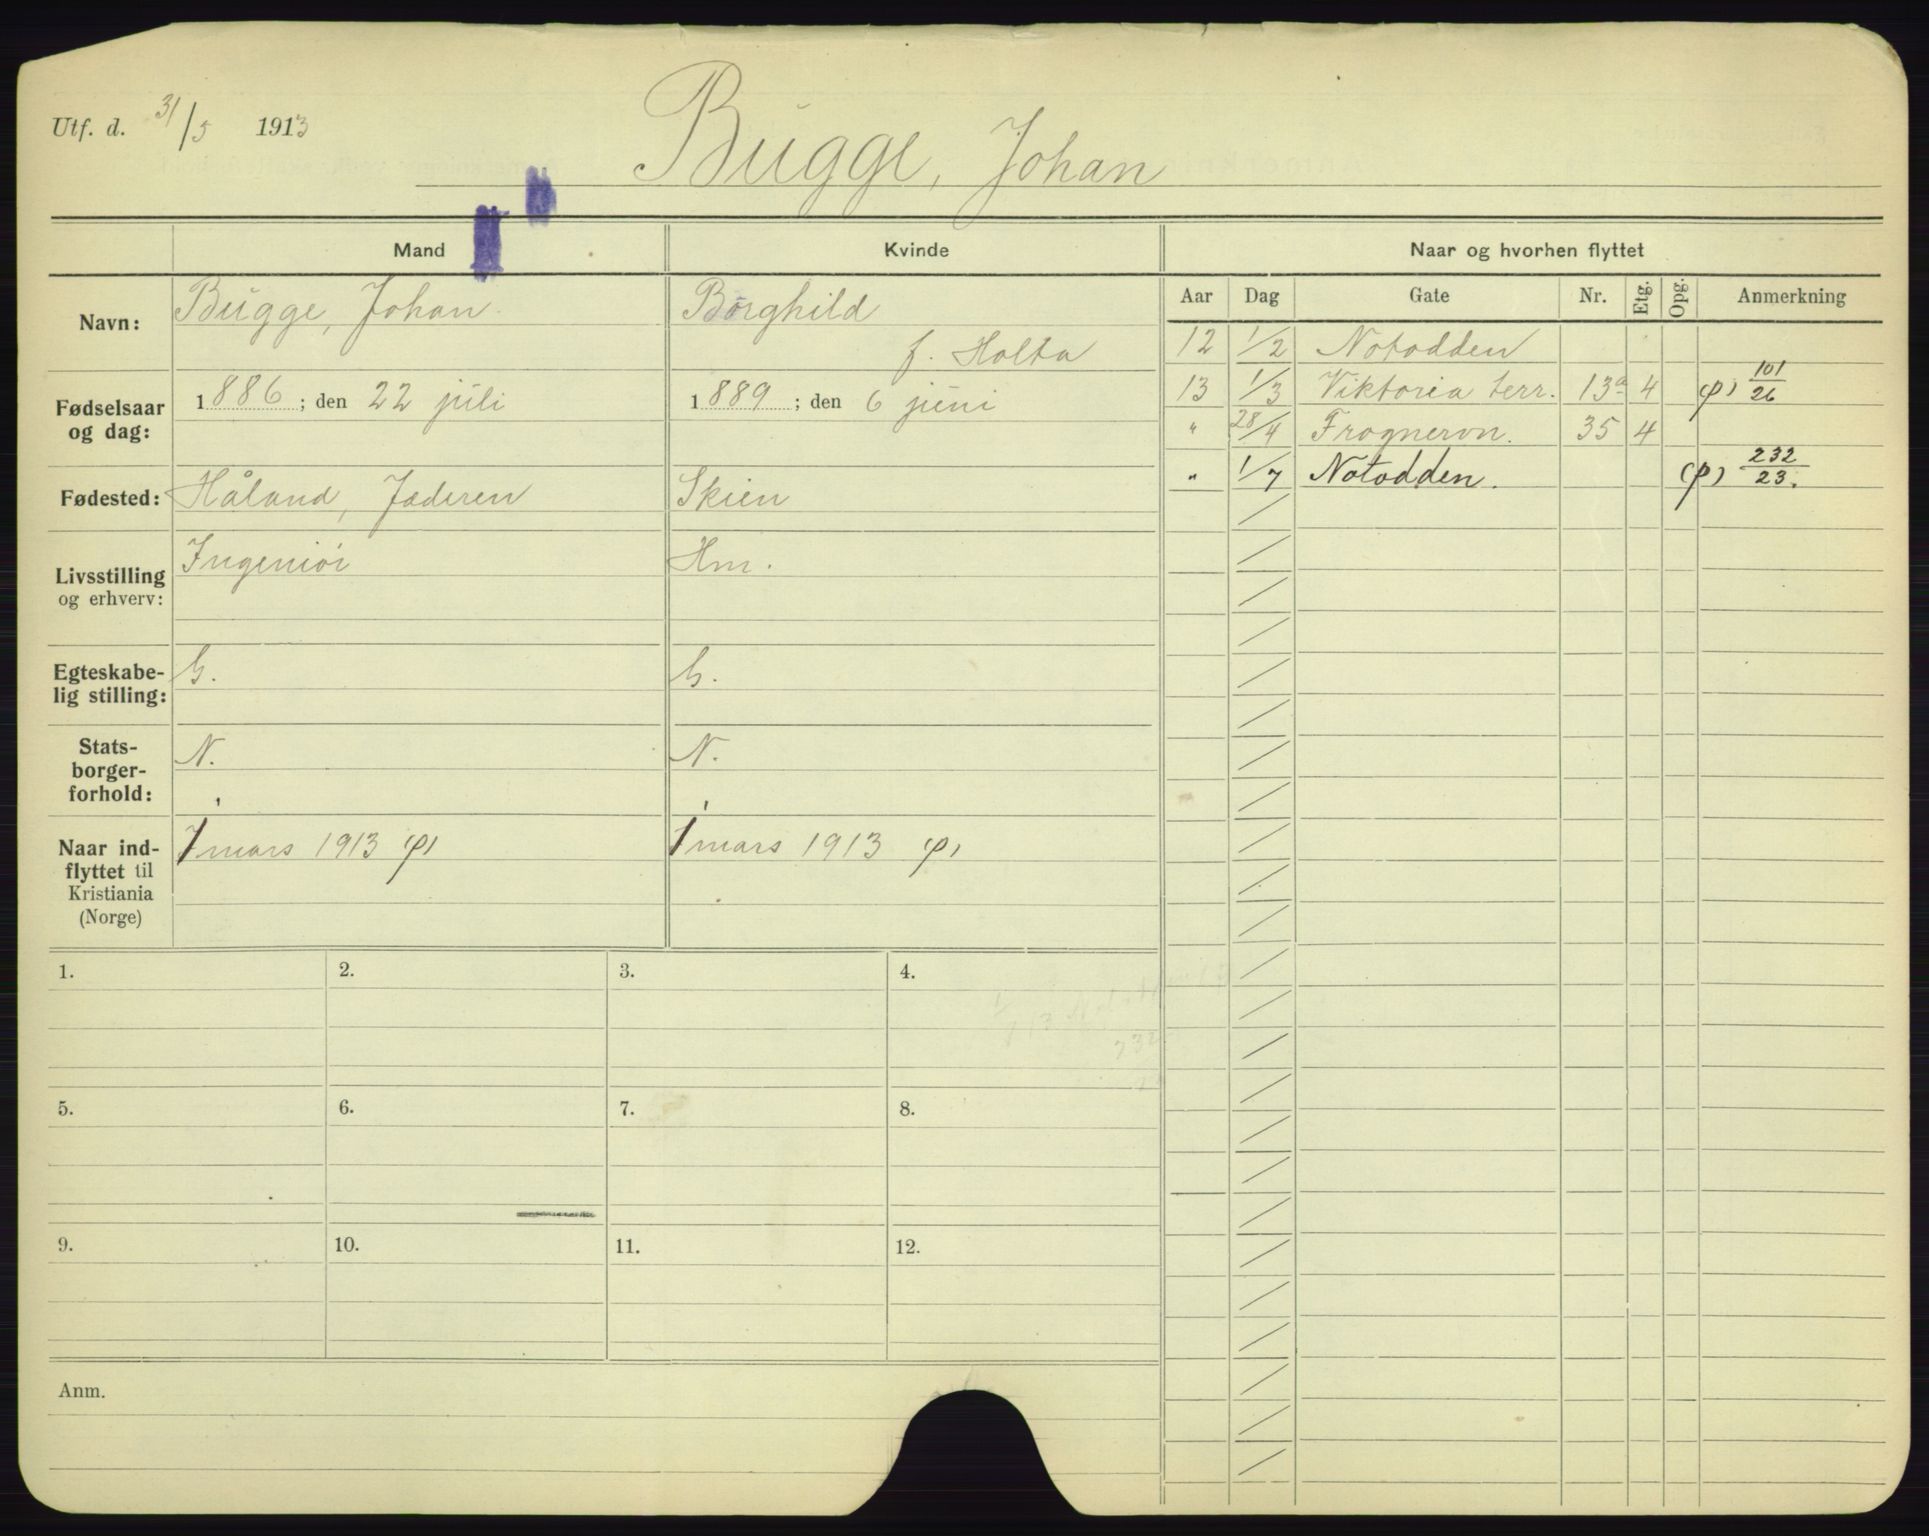 Utf. d. 31/5 1913
Bugge, Johan
Mand
Kvinde
Naar og hvorhen flyttet
Navn:
Bugge, Johan
Borghild
f. Holta
Fødselsaar
og dag:
1886; den 22 juli
1889; den 6 juni
Fødested:
Håland, Jæderen
Skien
Livsstilling
og erhverv:
Ingeniør
Hm.
Egteskabe-
lig stilling:
G.
G.
Stats-
borger-
forhold:
N.
N.
Naar ind-
flyttet til
Kristiania
(Norge)
1 mars 1913 φ)
1 mars 1913 φ)
Aar Dag Gate Nr. Etg. Opg. Anmerkning
12 1/2 Notodden
13 1/3 Viktoria terr. 13a 4 φ) 101/26
" 28/4 Frognervn. 35 4
" 1/7 Notodden. (φ) 232/23.
1. 2. 3. 4.
5. 6. 7. 8.
9. 10. 11. 12.
Anm.